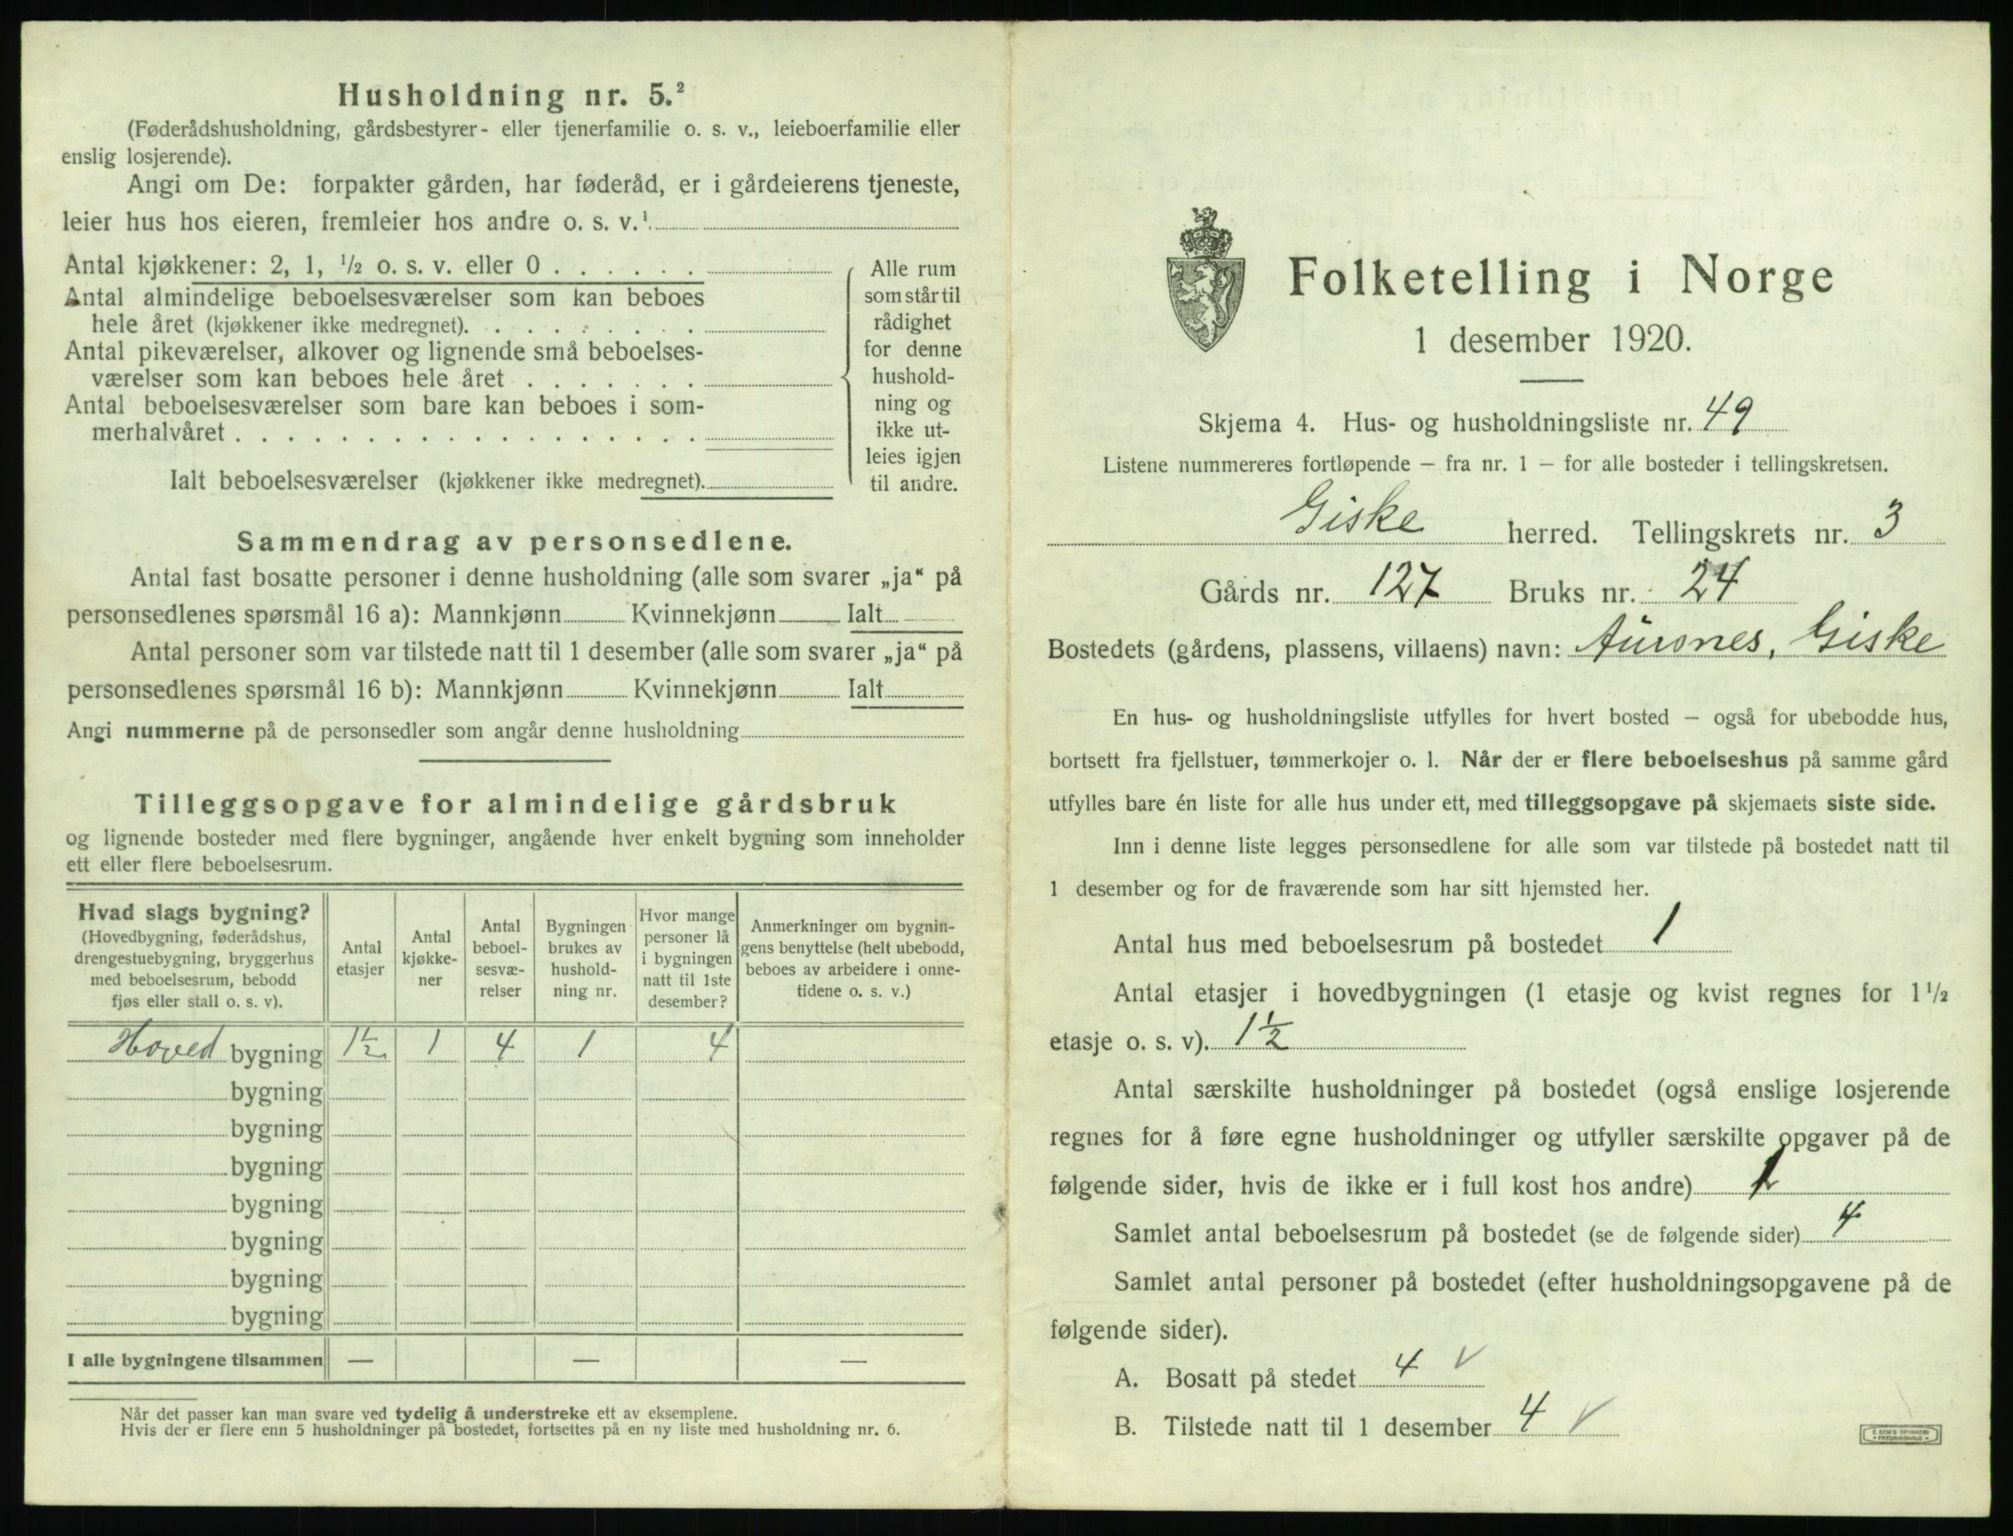 Husholdning nr. 5.²
(Føderådshusholdning, gårdsbestyrer- eller tjenerfamilie o. s. v., leieboerfamilie eller
enslig losjerende).
Angi om De: forpakter gården, har føderåd, er i gårdeierens tjeneste,
leier hus hos eieren, fremleier hos andre o. s. v.¹
Antal kjøkkener: 2, 1, ½ o. s. v. eller 0 . . . . . .
Antal almindelige beboelsesværelser som kan beboes
hele året (kjøkkener ikke medregnet). . . . . . . . .
Antal pikeværelser, alkover og lignende små beboelses-
værelser som kan beboes hele året . . . . . . .
Antal beboelsesværelser som bare kan beboes i som-
merhalvåret . . . . . . . . . . . . . . . . . .
Ialt beboelsesværelser (kjøkkener ikke medregnet).
Alle rum
som står til
rådighet
for denne
hushold-
ning og
ikke ut-
leies igjen
til andre.
Sammendrag av personsedlene.
Antal fast bosatte personer i denne husholdning (alle som svarer „ja“ på
personsedlenes spørsmål 16 a): Mannkjønn Kvinnekjønn Ialt
Antal personer som var tilstede natt til 1 desember (alle som svarer „ja“ på
personsedlenes spørsmål 16 b): Mannkjønn Kvinnekjønn Ialt
Angi nummerne på de personsedler som angår denne husholdning
Tilleggsopgave for almindelige gårdsbruk
og lignende bosteder med flere bygninger, angående hver enkelt bygning som inneholder
ett eller flere beboelsesrum.
Hvad slags bygning?
(Hovedbygning, føderådshus,
drengestuebygning, bryggerhus
med beboelsesrum, bebodd
fjøs eller stall o. s. v).
Antal
etasjer
Antal
kjøkke-
ner
Antal
beboel-
sesvæ-
relser
Bygningen
brukes av
hushold-
ning nr.
Hvor mange
personer lå
i bygningen
natt til 1ste
desember?
Anmerkninger om bygnin-
gens benyttelse (helt ubebodd,
beboes av arbeidere i onne-
tidene o. s. v.)
Hoved bygning 1½ 1 4 1 4
bygning
bygning
bygning
bygning
bygning
bygning
bygning
I alle bygningene tilsammen — — —
Når det passer kan man svare ved tydelig å understreke ett av eksemplene.
Hvis der er flere enn 5 husholdninger på bostedet, fortsettes på en ny liste med husholdning nr. 6.
Folketelling i Norge
1 desember 1920.
Skjema 4. Hus- og husholdningsliste nr. 49
Listene nummereres fortløpende – fra nr. 1 – for alle bosteder i tellingskretsen.
Giske herred. Tellingskrets nr. 3
Gårds nr. 127 Bruks nr. 24
Bostedets (gårdens, plassens, villaens) navn: Aursnes, Giske
En hus- og husholdningsliste utfylles for hvert bosted – også for ubebodde hus,
bortsett fra fjellstuer, tømmerkojer o. l. Når der er flere beboelseshus på samme gård
utfylles bare én liste for alle hus under ett, med tilleggsopgave på skjemaets siste side.
Inn i denne liste legges personsedlene for alle som var tilstede på bostedet natt til
1 desember og for de fraværende som har sitt hjemsted her.
Antal hus med beboelsesrum på bostedet 1
Antal etasjer i hovedbygningen (1 etasje og kvist regnes for 1½
etasje o. s. v). 1½
Antal særskilte husholdninger på bostedet (også enslige losjerende
regnes for å føre egne husholdninger og utfyller særskilte opgaver på de
følgende sider, hvis de ikke er i full kost hos andre) 1
Samlet antal beboelsesrum på bostedet (se de følgende sider) 4
Samlet antal personer på bostedet (efter husholdningsopgavene på de
følgende sider).
A. Bosatt på stedet 4 √
B. Tilstede natt til 1 desember 4 √